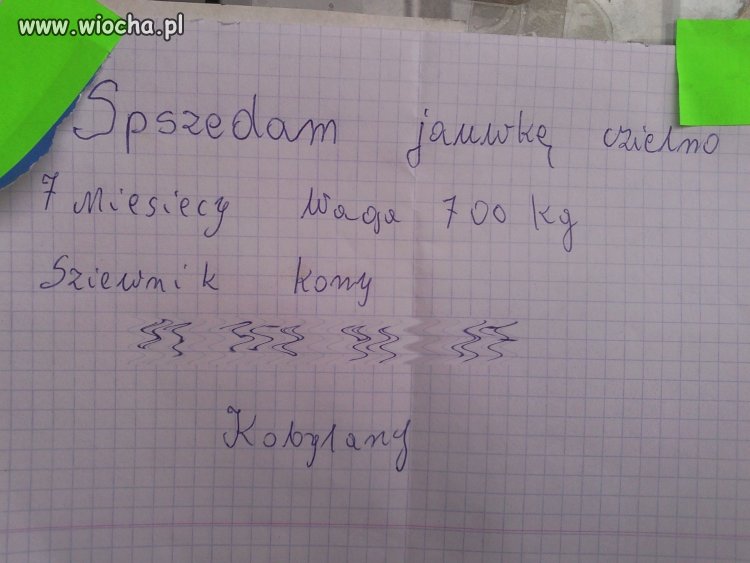 www.wiocha.pl
Spszedam jauwkę czielno
7 miesiecy waga 700 kg
Sziewnik kony
Kobylany